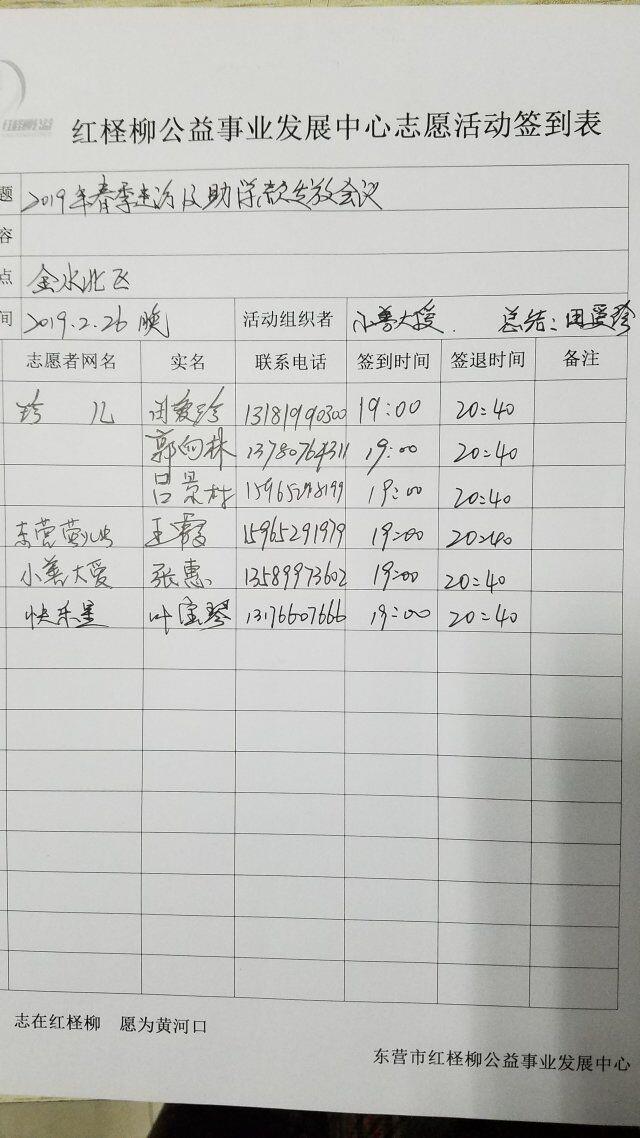 红柽柳公益事业发展中心志愿活动签到表
题 2019年春季走访及助学款发放会议
容
点 金水北区
间 2019.2.26 晚 活动组织者 小善大爱. 总结:田爱珍
志愿者网名 实名 联系电话 签到时间 签退时间 备注
珍儿 田爱珍 13181990300 19:00 20:40
郭向林 13780764311 19:00 20:40
吕景村 15965298199 19:00 20:40
王霞 15965291979 19:00 20:40
小善大爱 张惠 13589973602 19:00 20:40
快乐星 叶宝琴 13176607666 19:00 20:40
志在红柽柳 愿为黄河口
东营市红柽柳公益事业发展中心